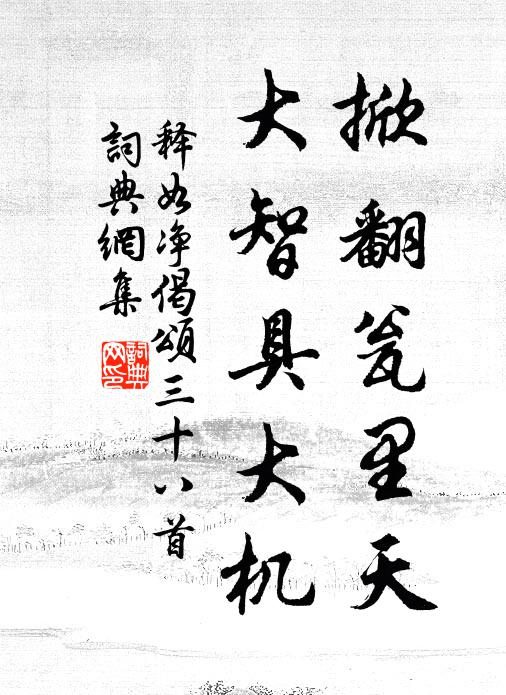 掀翻瓮里天
大智具大机
释如净偈頌三十八首
詞典網集
詞典
网印